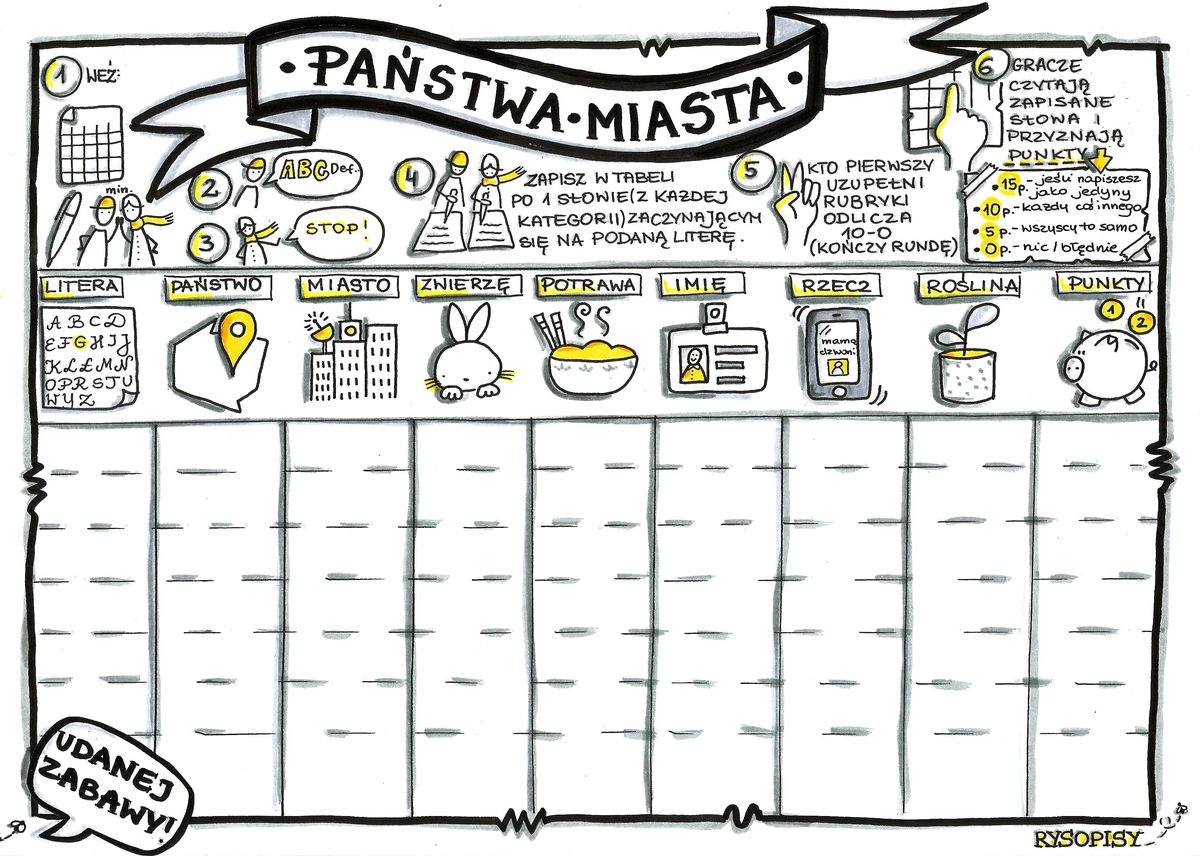 PAŃSTWA • MIASTA
1 WEŹ:
min.
2 ABC Def..
3 STOP!
4 ZAPISZ W TABELI
PO 1 SŁOWIE (Z KAŻDEJ
KATEGORII) ZACZYNAJĄCYM
SIĘ NA PODANĄ LITERĘ.
5 KTO PIERWSZY
UZUPEŁNI
RUBRYKI
ODLICZA
10-0
(KOŃCZY RUNDĘ)
6 GRACZE
CZYTAJĄ
ZAPISANE
SŁOWA I
PRZYZNAJĄ
PUNKTY
• 15p. - jeśli napiszesz
jako jedyny
• 10p. - każdy co innego
• 5 p. - wszyscy to samo
• 0 p. - nic / błędnie
LITERA PAŃSTWO MIASTO ZWIERZĘ POTRAWA IMIĘ RZECZ ROŚLINA PUNKTY
A B C D
E F G H I J
K L Ł M N
O P R S T U
W Y Z
mama
dzwoni
1 2
UDANEJ
ZABAWY!
RYSOPISY